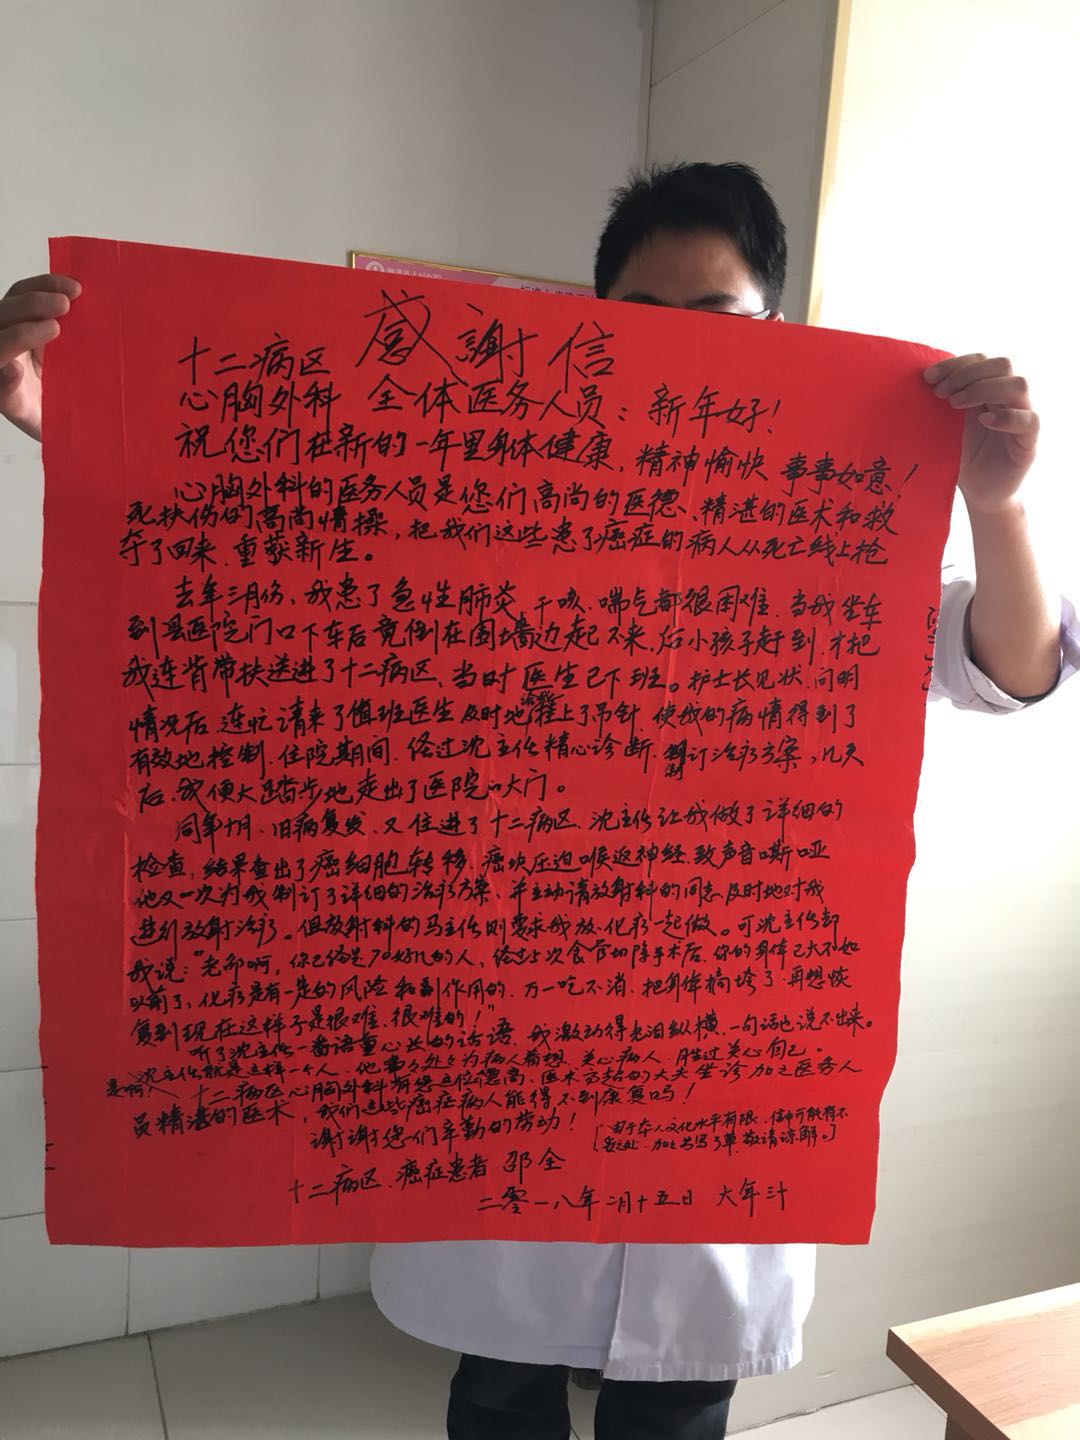 感謝信
十二病区
心胸外科 全体医务人员：新年好！
祝您们在新的一年里身体健康，精神愉快 事事如意！
心胸外科的医务人员是您们高尚的医德、精湛的医术和救
死扶伤的高尚情操，把我们这些患了癌症的病人从死亡线上抢
夺了回来，重获新生。
去年三月份、我患了急性肺炎、干咳、喘气都很困难、当我坐车
到县医院门口下车后竟倒在围墙边起不来，后小孩子赶到，才把
我连背带扶送进了十二病区、当时医生已下班。护士长见状、问明
情况后、连忙请来了值班医生及时地给我挂上了吊针、使我的病情得到了
有效地控制、住院期间、经过沈主任精心诊断、制订治疗方案、几天
后、我便大踏步地走出了医院的大门。
同年十月、旧病复发、又住进了十二病区、沈主任让我做了详细的
检查，结果查出了癌细胞转移、癌块压迫喉返神经、致声音嘶哑
他又一次为我制订了详细的治疗方案、并主动请放射科的同志及时地对我
进行放射治疗。但放射科的马主任则要求我放、化疗一起做。可沈主任却
我说："老邵啊，你已经是70好几的人，经过5次食管切除手术后、你的身体已大不如
以前了，化疗是有一定的风险和副作用的、万一吃不消、把身体搞垮了、再想恢
复到现在这样子是很难、很难的！"
听了沈主任一番语重心长的话语、我激动得老泪纵横、一句话也说不出来。
是啊、沈主任就是这样一个人、他事事处处为病人着想、关心病人、胜过关心自己。
十二病区心胸外科有您这位德高、医术高超的大夫坐诊加之医务人
员精湛的医术，我们这些癌症病人能得不到康复吗！
谢谢您们辛勤的劳动！
[由于本人文化水平有限、信中可能有不
妥之处、加之书写了草、敬请谅解。]
十二病区、癌症患者 邵全
二零一八年二月十五日 大年三十